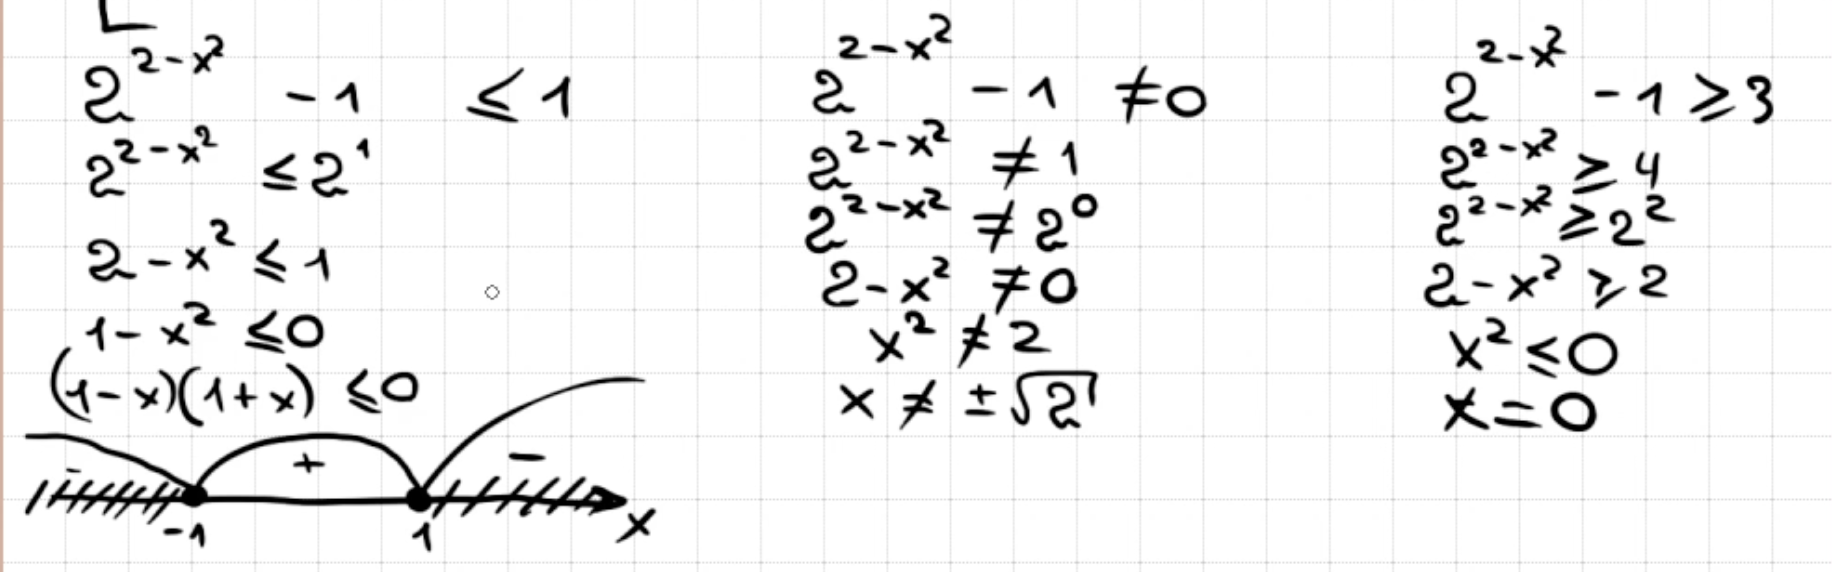 2^{2-x^2} - 1 ≤ 1
2^{2-x^2} ≤ 2^1
2 - x^2 ≤ 1
1 - x^2 ≤ 0
(1-x)(1+x) ≤ 0
- + -
-1 1 x
2^{2-x^2} - 1 ≠ 0
2^{2-x^2} ≠ 1
2^{2-x^2} ≠ 2^0
2 - x^2 ≠ 0
x^2 ≠ 2
x ≠ ±√2
2^{2-x^2} - 1 ≥ 3
2^{2-x^2} ≥ 4
2^{2-x^2} ≥ 2^2
2 - x^2 ≥ 2
x^2 ≤ 0
x = 0